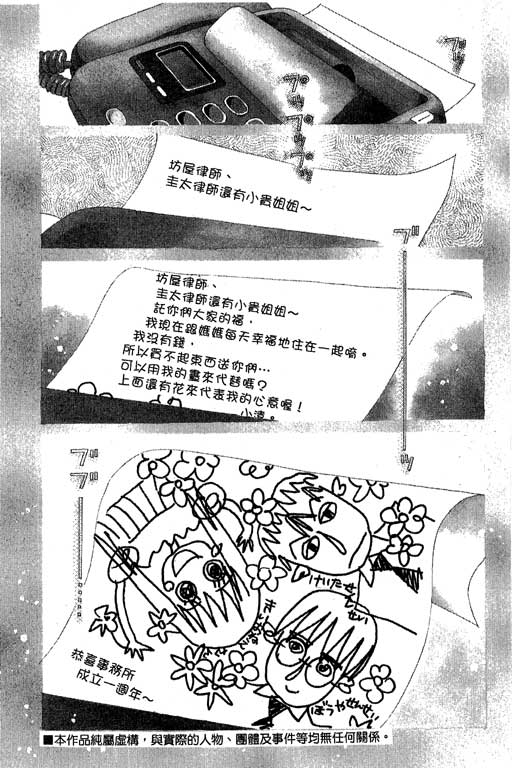 プッ
プッ
プッ
プッ
坊屋律師、
圭太律師還有小貴姐姐～
ブ
ッ
坊屋律師、
圭太律師還有小貴姐姐～
託你們大家的福，
我現在跟媽媽每天幸福地住在一起唷。
我沒有錢，
所以買不起東西送你們…
可以用我的畫來代替嗎？
上面還有花來代表我的心意喔！
小遼。
ブブ
けいたせんせい
ぼうやせんせい
恭喜事務所
成立一週年～
■本作品純屬虛構，與實際的人物、團體及事件等均無任何關係。